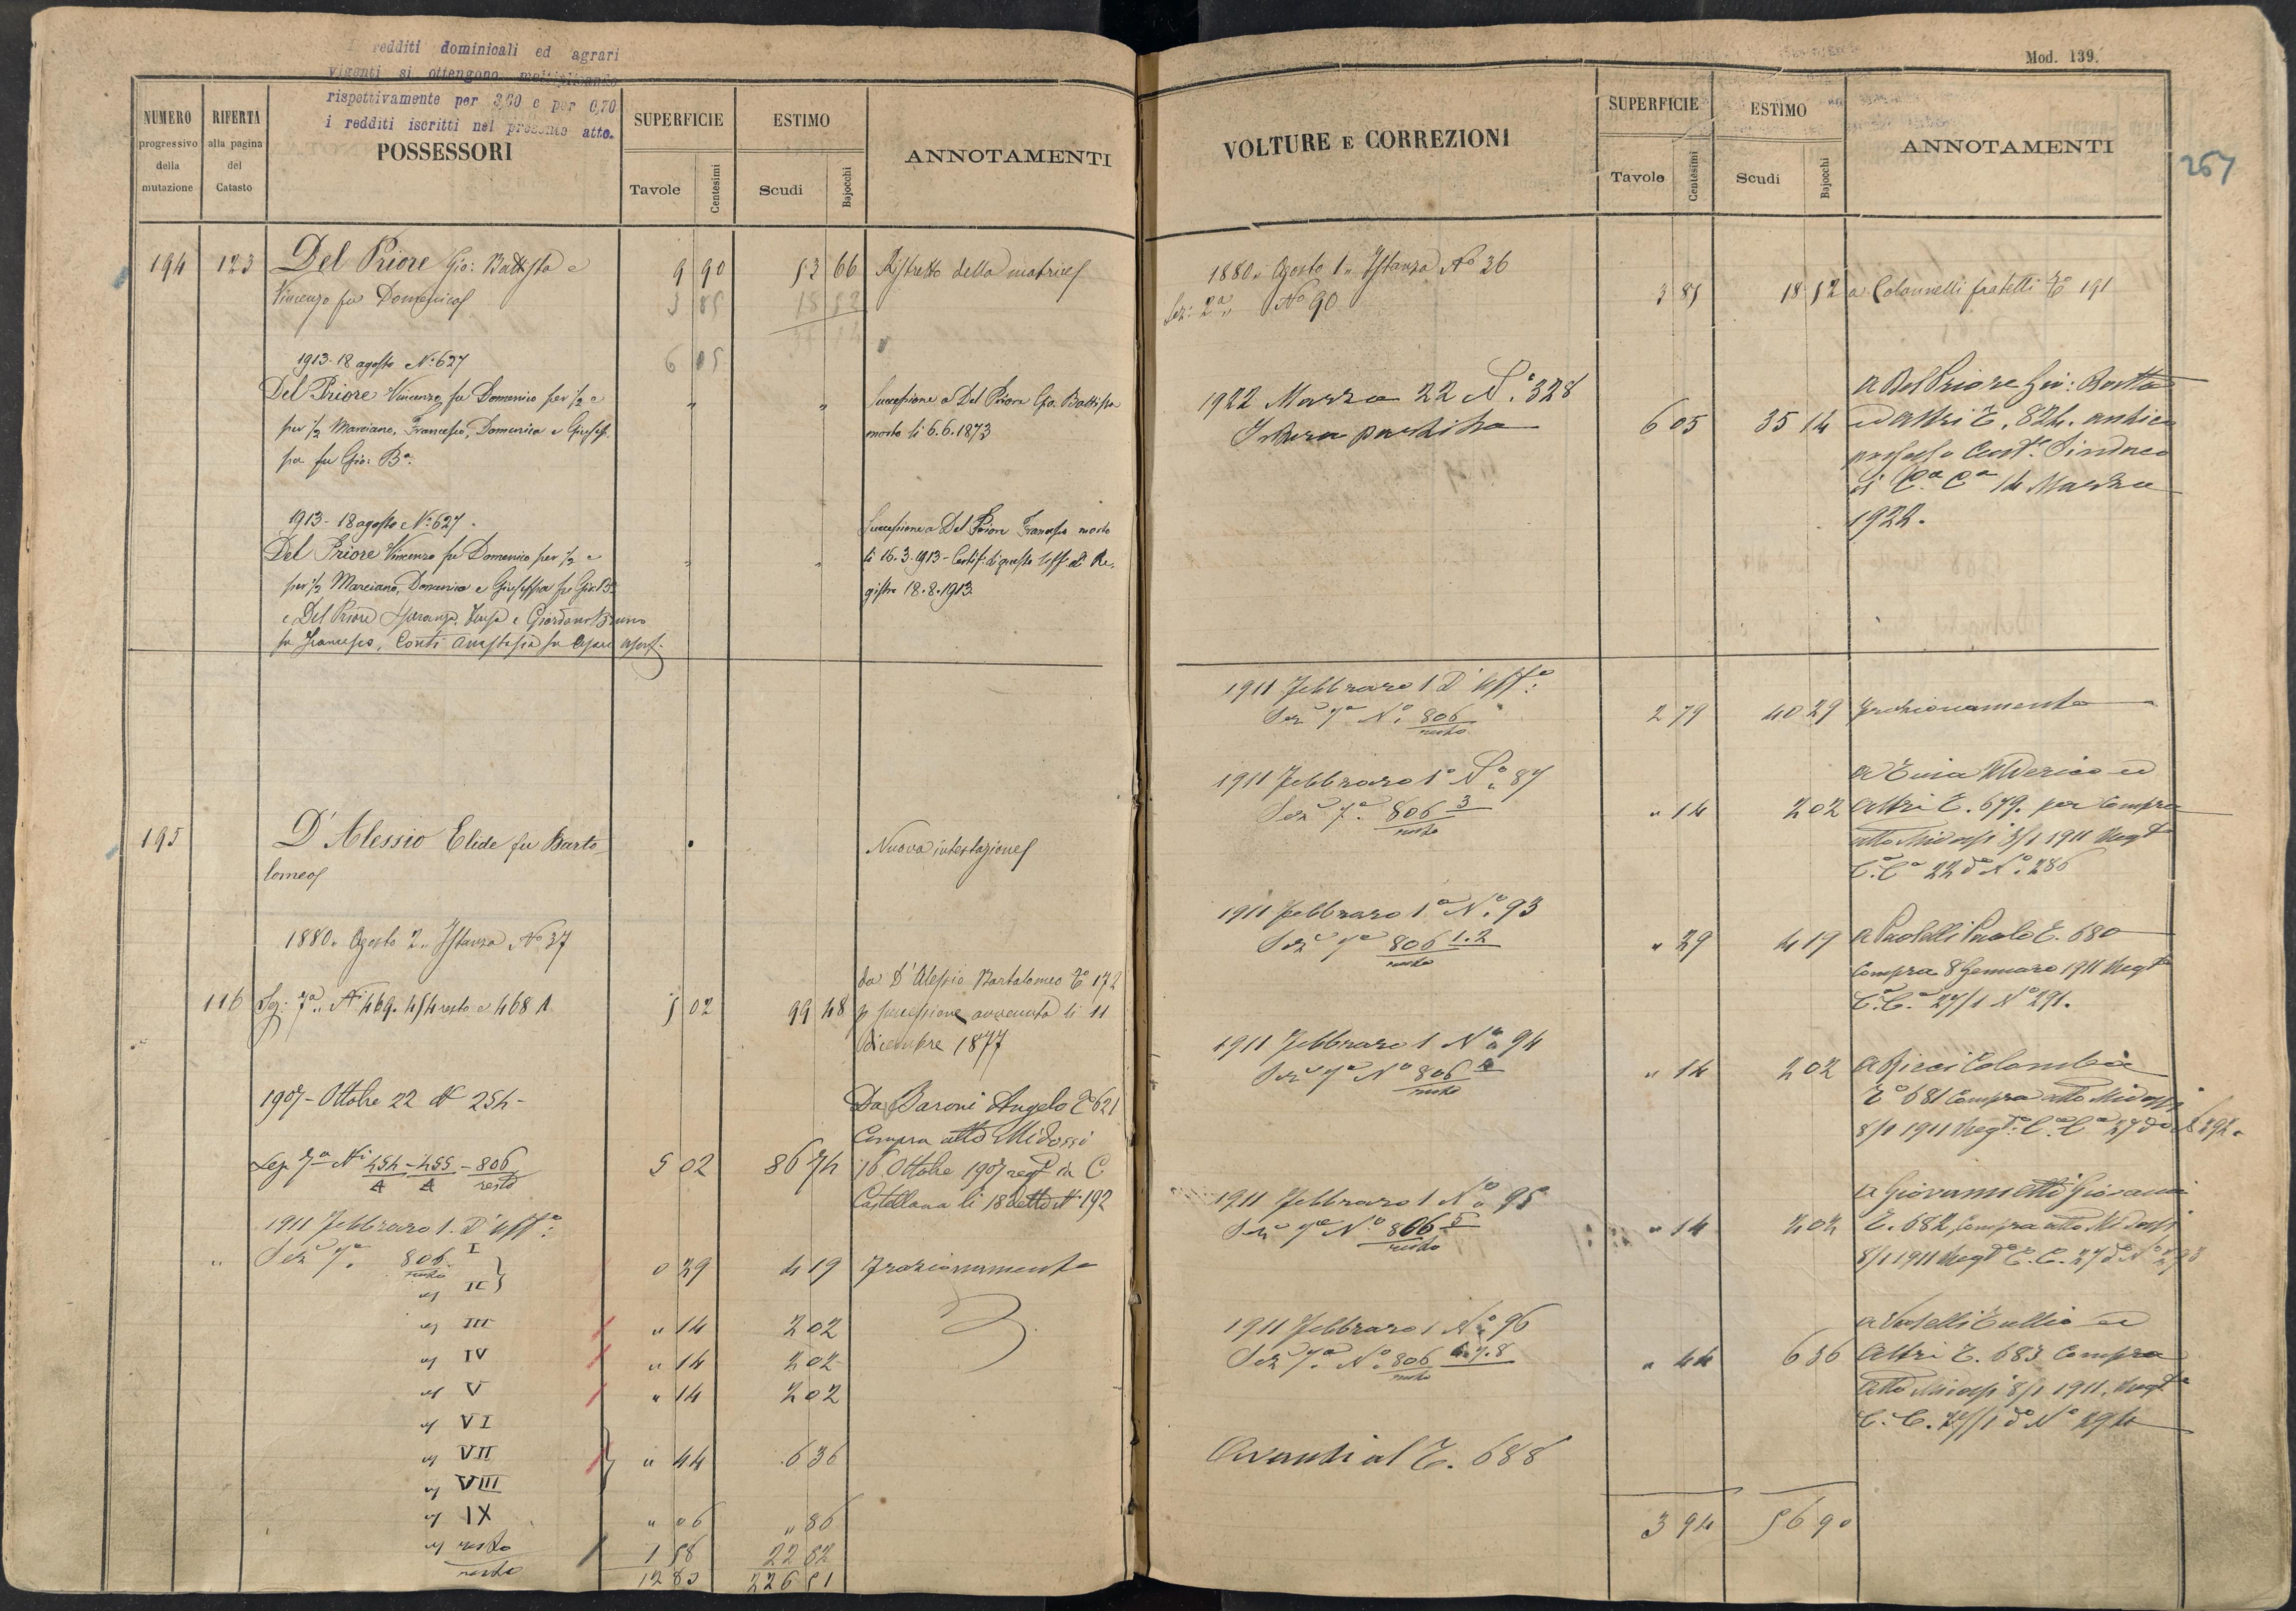 redditi dominicali ed agrari
vigenti si ottengono moltiplicando
rispettivamente per 3,60 e per 0,70
i redditi iscritti nel presente atto.
NUMERO
progressivo
della
mutazione
RIFERTA
alla pagina
del
Catasto
POSSESSORI
SUPERFICIE
Tavole
Centesimi
ESTIMO
Scudi
Bajocchi
ANNOTAMENTI
194 123 Del Priore Gio: Battista e 9 90 53 66 Ristretto della matrice
Vincenzo fu Domenico 3 85 18 52
6 05
1913- 18 agosto N:627
Del Priore Vincenzo fu Domenico per 1/2 e " " Successione a Del Priore Gio. Battista
per 1/2 Marciano, Francesco, Domenica e Giusep- morto li 6.6.1873
pa fu Gio: Ba.
1913- 18 agosto N:627.
Successione a Del Priore Francesco morto
Del Priore Vincenzo fu Domenico per 1/2 e " " li 16.3.1913 - Certif. di questo Uff. di Re-
per 1/2 Marciano, Domenica e Giuseppa fu Gio: Ba gistro 18.8.1913
e Del Priore Speranza, e Giordano Bruno
fu Francesco, Conti Anastasia fu
195 D'Alessio Elide fu Barto- Nuova intestazione
lomeo
1880 Agosto 2 Istanza No 37
da D'Alessio Bartolomeo To 172
116 Sez: 7a Ni 469. 454 resto e 468 A 5 02 99 48 p successione avvenuta li 11
Dicembre 1877
1907- Ottobre 22 N 254- Da Baroni Angelo To 621
Compra atto Midossi
Sez. 7a Ni 454/A - 455/A - 806/resto 5 02 86 74 16 Ottobre 1907 regto in C
Castellana li 18 detto N 192
1911 Febbraro 1. D'Uffo:
" Sez 7a 806/resto I 0 29 4 19 Frazionamento
" II
" III " 14 2 02
" IV " 14 2 02
" V " 14 2 02
" VI
" VII " 44 6 36
" VIII
" IX " 06 " 86
" resto/resto 1 58 22 82
12 83 226 51
Mod. 139.
267
VOLTURE E CORREZIONI
SUPERFICIE
Tavole
Centesimi
ESTIMO
Scudi
Bajocchi
ANNOTAMENTI
1880 Agosto 1 Istanza No 36
Sez: 2a No 90 3 85 18 52 a Colonnelli fratelli To 191
1922 Marzo 22 N. 328 a Del Priore Gio: Batta
Intera partita 6 05 35 14 ed altri T. 824. antico
possesso Certo. Sindaco
di Ca Ca 14 Marzo
1922.
1911 Febbraro 1 D'Uffo:
Sez 7a No. 806/resto 2 79 40 29 Frazionamento
1911 Febbraro 1o No. 87 ed
Sez 7a. 806 3/resto " 14 2 02 altri T. 679. per Compra
atto Midossi 8/1 1911 Regto
C. Ca 22 do No. 286
1911 Febbraro 1o No. 93
Sez 7a 806 1.2/resto " 29 4 19 a Paolelli Paolo T. 680
Compra 8 Gennaro 1911 Regto
C. C. 27/1 No 291.
1911 Febbraro 1 No 94
Sez 7a No 806 4/resto " 14 2 02 a Ricci Colomba
To 681 Compra atto Midossi
8/1 1911 Regto: C. Ca 27 do N 292.
1911 Febbraro 1 No 95 a Giovannetti Giovanni
Sez 7a No 806 5/resto " 14 2 02 T. 682, Compra atto Midossi
8/1 1911 Regto C. C. 27 do No 293
1911 Febbraro 1 No. 96 Tullio ed
Sez 7a. No. 806 6.7.8/resto " 44 6 36 Altri T. 683 Compra
atto Midossi 8/1 1911. Regto
C. C. 27/1 do No 294
Avanti al T. 688
3 94 56 90